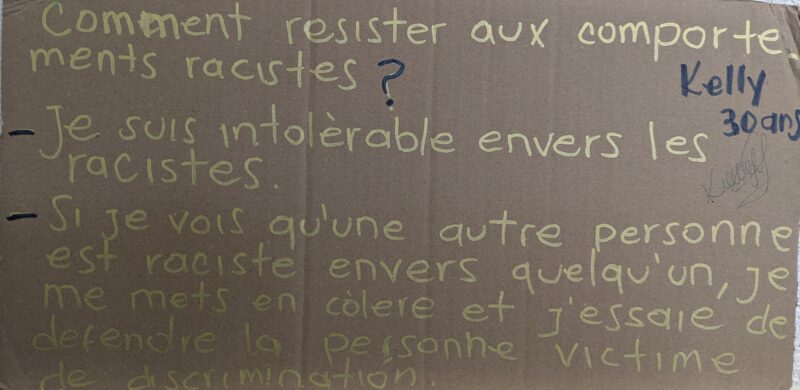 Comment resister aux comporte
ments racistes ?
Kelly
30 ans
- Je suis intolèrable envers les
racistes.
- Si je vois qu'une autre personne
est raciste envers quelqu'un, je
me mets en còlere et j'essaie de
defendre la personne victime
de discrimination.